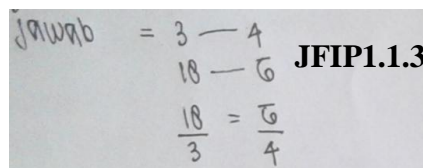 jawab = 3 — 4
18 — 6
JFIP1.1.3
18/3 = 6/4